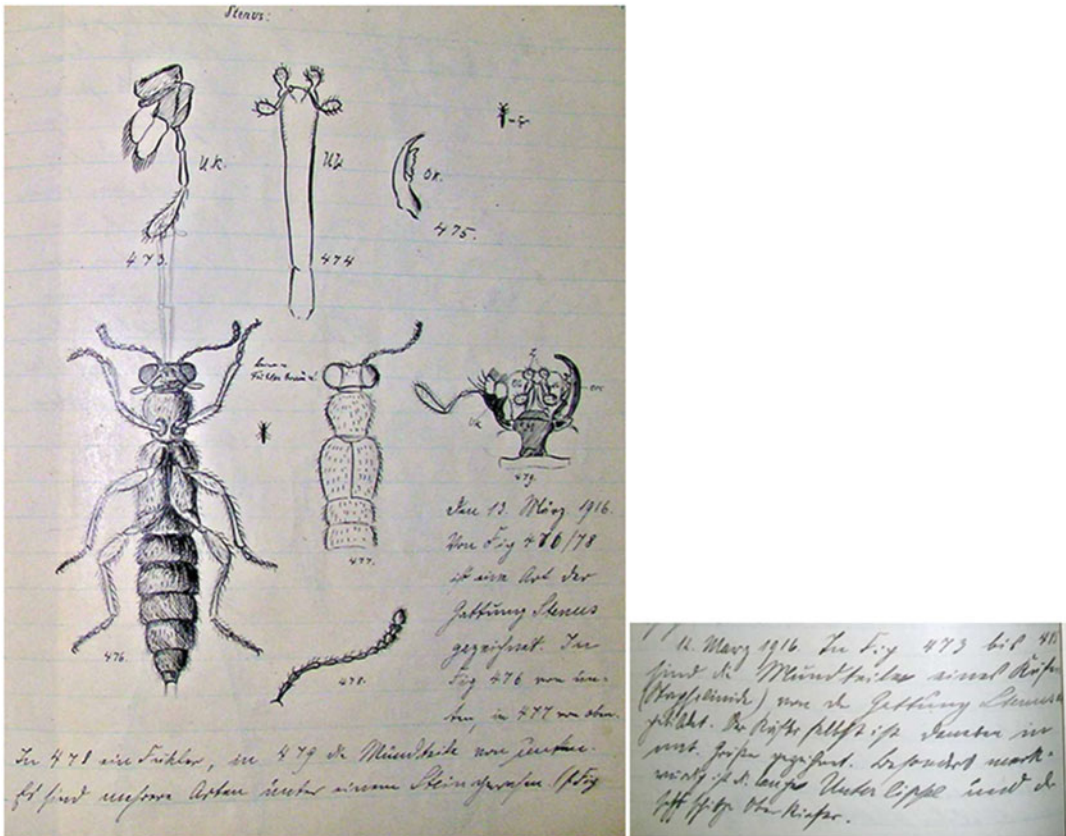 Stenus:
U.K.
UL
OK.
473.
474
475.
Fühler
476.
477.
478.
479.
Den 13. März 1916.
Von Fig 476/78
ist eine Art der
Gattung Stenus
gezeichnet. In
Fig 476 von un-
ten, in 477 von oben.
In 478 ein Fühler, in 479 die Mundteile von unten.
Es sind mehrere Arten unter einem (s. Fig
12. März 1916. In Fig 473 bis
sind die Mundteile eines Käfers
(Staphilinide) von der Gattung Stenus
gebildet. Der Käfer selbst ist daneben in
nat. Größe gezeichnet. Besonders merk-
würdig ist die lange Unterlippe und der
Oberkiefer.